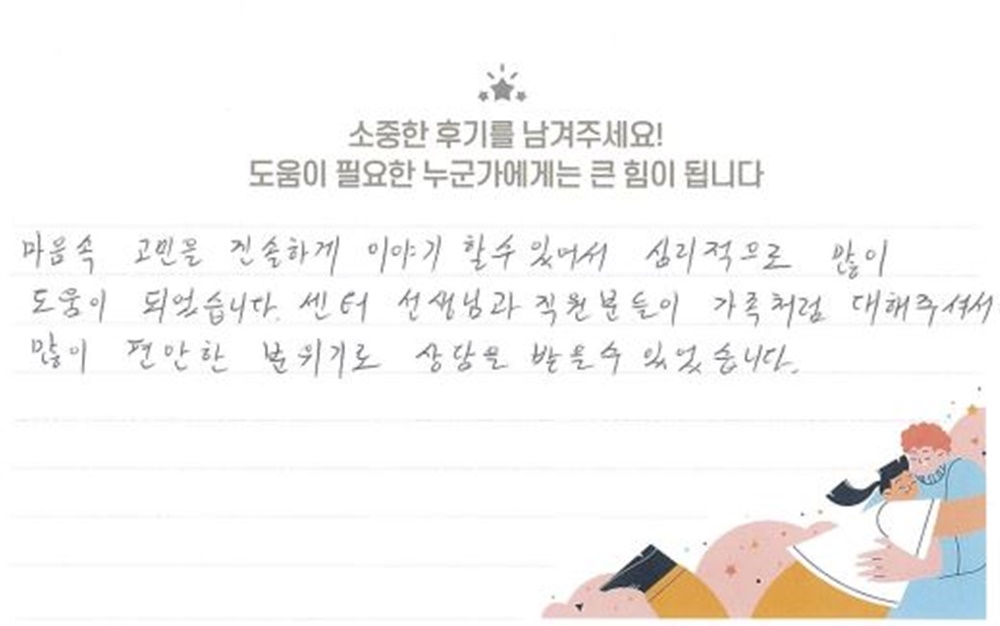 소중한 후기를 남겨주세요!
도움이 필요한 누군가에게는 큰 힘이 됩니다
마음속 고민을 진솔하게 이야기 할수 있어서 심리적으로 많이
도움이 되었습니다. 센터 선생님과 직원분들이 가족처럼 대해주셔서
많이 편안한 분위기로 상담을 받을수 있었습니다.